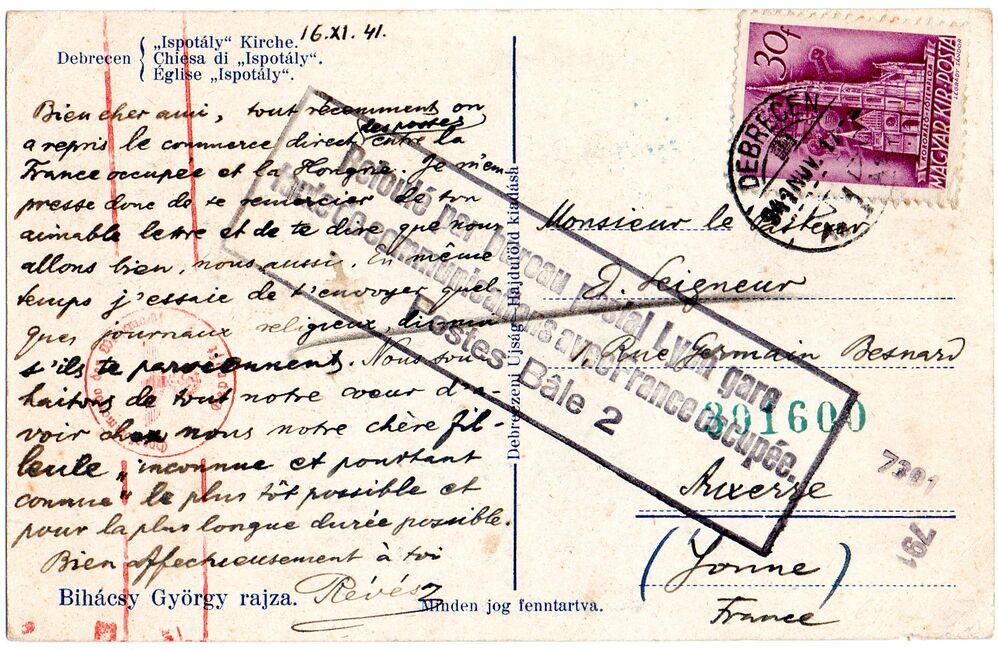 Debrecen
„Ispotály" Kirche.
Chiesa di „Ispotály".
Église „Ispotály".
16.XI.41.
Bien cher ami, tout récemment on
les postes
a repris le commerce direct entre la
France occupée et la Hongrie. Je m'em
presse donc de te remercier de ton
aimable lettre et de te dire que nous
allons bien, nous aussi. En même
temps j'essaie de t'envoyer quel-
ques journaux religieux, dis-moi
s'ils te parviennent. Nous sou-
haitons de tout notre cœur d'a-
voir chez nous notre chère fil-
leule „inconnue et pourtant
connue" le plus tôt possible et
pour la plus longue durée possible.
Bien affectueusement à toi
Révész
Bihácsy György rajza.
Minden jog fenntartva.
Debreczeni Ujság-Hajduföld kiadása
30f
MAGYAR KIR. POSTA
LÉGRÁDY SÁNDOR
DEBRECEN
941 NOV. 17
Refoulé par bureau postal Lyon gare
communications avec France occupée.
Postes Bâle 2
Monsieur le Pasteur
Seigneur
1, Rue Germain Besnard
301600
7391
791
Auxerre
(Yonne)
France